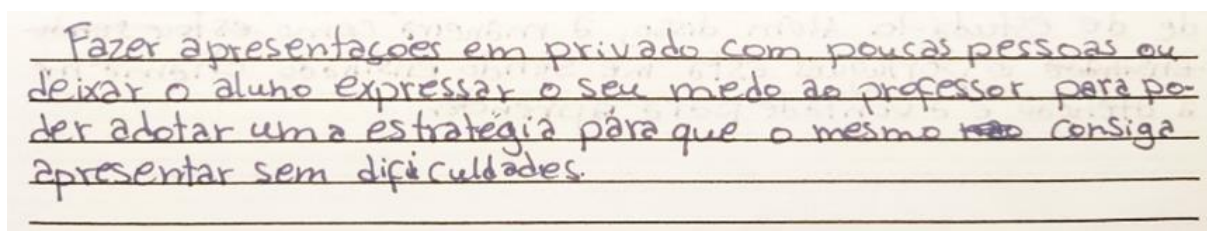 Fazer apresentações em privado com poucas pessoas ou
deixar o aluno expressar o seu medo ao professor para po-
der adotar uma estratégia para que o mesmo consiga
apresentar sem dificuldades.